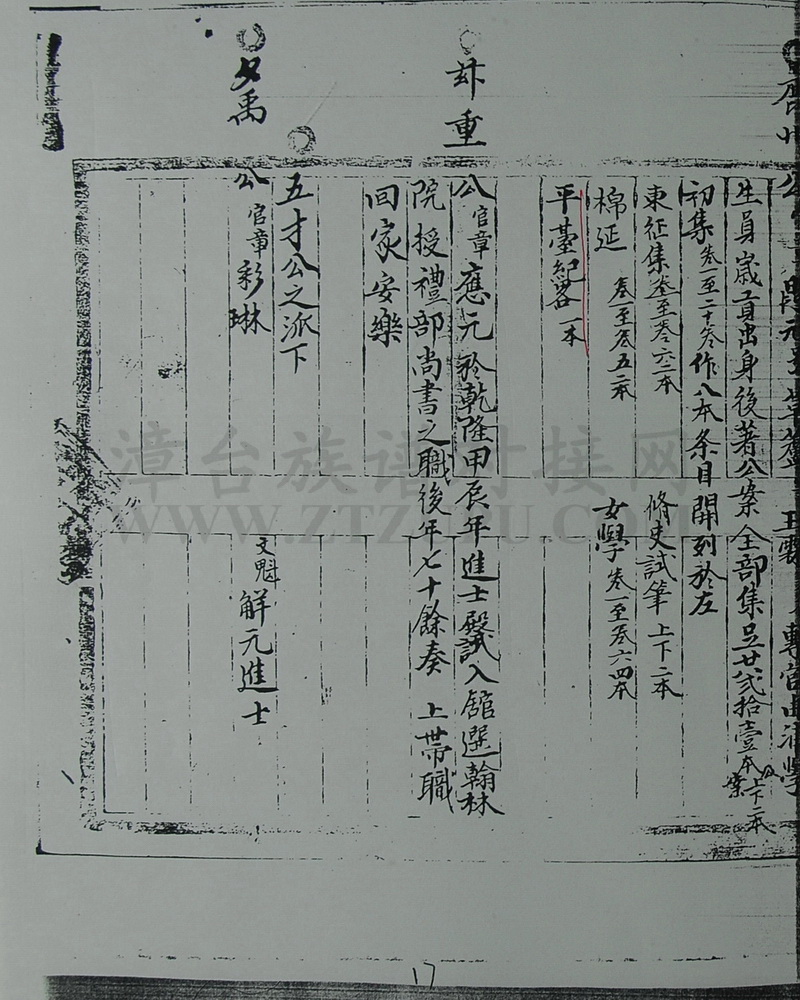 生員歲貢出身後著公案全部集足廿弍拾壹本公案上下二本
初集卷一至二十卷作八本条目開列於左
東征集卷至卷六二本 脩史試筆上下二本
棉延 卷一至卷五二本 女學卷一至卷六四本
平臺紀畧一本
重
公官章應元於乾隆甲辰年進士殿試入舘選翰林
院授禮部尚書之職後年七十餘奏 上帶職
回家安樂
五才公之派下
禹
公官章彩琳 文魁解元進士
漳台族谱对接网
WWW.ZTZUPU.COM
17